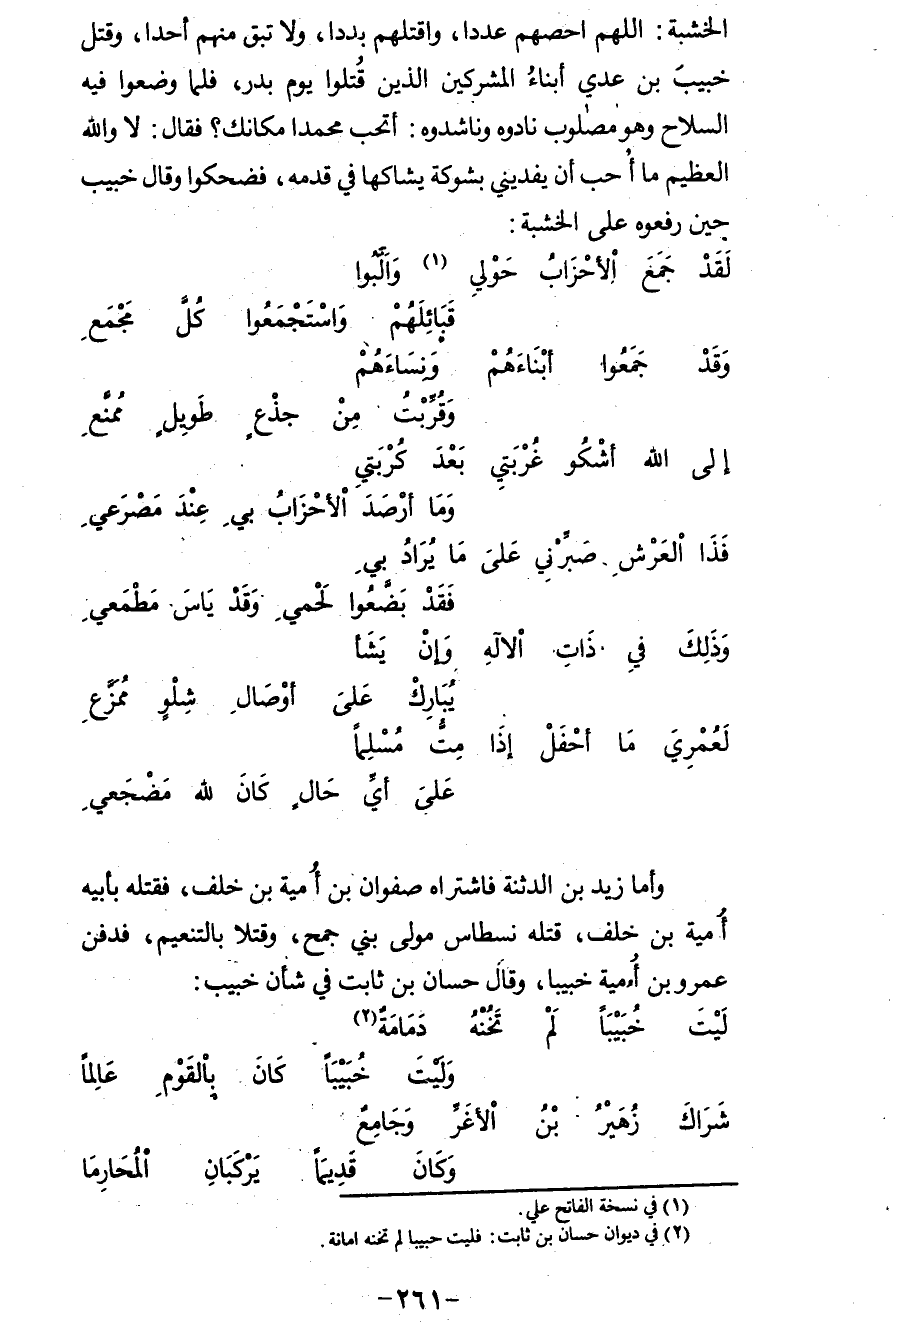 الخشبة: اللهم احصهم عددا، واقتلهم بددا، ولا تبق منهم أحدا، وقتل
خبيبَ بن عدي أبناءُ المشركين الذين قُتلوا يوم بدر، فلما وضعوا فيه
السلاح وهو مصلوب نادوه وناشدوه: أتحب محمدا مكانك؟ فقال: لا والله
العظيم ما أُحب أن يفديني بشوكة يشاكها في قدمه، فضحكوا وقال خبيب
حين رفعوه على الخشبة:
لَقَدْ جَمَعَ اْلأحْزَابُ حَوْلِي (١) وَالَّبُوا
قَبَائِلَهُمْ وَاسْتَجْمَعُوا كُلَّ مَجْمَعِ
وَقَدْ جَمَعُوا أبْنَاءَهُمْ وَنِسَاءَهُمْ
وَقُرِّبْتُ مِنْ جِذْعٍ طَوِيلٍ مُمَنَّعِ
إلى الله أشْكُو غُرْبَتِي بَعْدَ كُرْبَتِي
وَمَا أرْصَدَ اْلأحْزَابُ بيِ عِنْدَ مَصْرَعيِ
فَذَا اْلعَرْشِ صَبِّرْنِي عَلىَ مَا يُرَادُ بيِ
فَقَدْ بَضَّعُوا لَحْميِ وَقَدْ يَاسَ مَطْمَعيِ
وَذَلِكَ فيِ ذَاتِ اْلالَهِ وَإنْ يَشَأ
يُبَارِكْ عَلىَ أوْصَالِ شِلْوٍ مُمَزَّعِ
لَعُمْرِيَ مَا أحْفَلْ إذَا مِتُّ مُسْلِماً
عَلىَ أيِّ حَالٍ كَانَ لله مَضْجَعيِ
وأما زيد بن الدثنة فاشتراه صفوان بن أُمية بن خلف، فقتله بأبيه
أُمية بن خلف، قتله نسطاس مولى بني جمح، وقتلا بالتنعيم، فدفن
عمرو بن أُمية خبيبا، وقال حسان بن ثابت في شأن خبيب:
لَيْتَ خُبَيْبَاً لَمْ تَخُنْهُ دَمَامَةٌ(٢)
وَلَيْتَ خُبَيْبَاً كَانَ بِاْلقَوْمِ عَالِماً
شَرَاكَ زُهَيْرُ بْنُ اْلأغَرِّ وَجَامِعٌ
وَكَانَ قَدِيمَاً يَرْكَبَانِ اْلمُحَارِمَا
(١) في نسخة الفاتح علي.
(٢) في ديوان حسان بن ثابت: فليت حبيبا لم تخنه امانة.
-٢٦١-